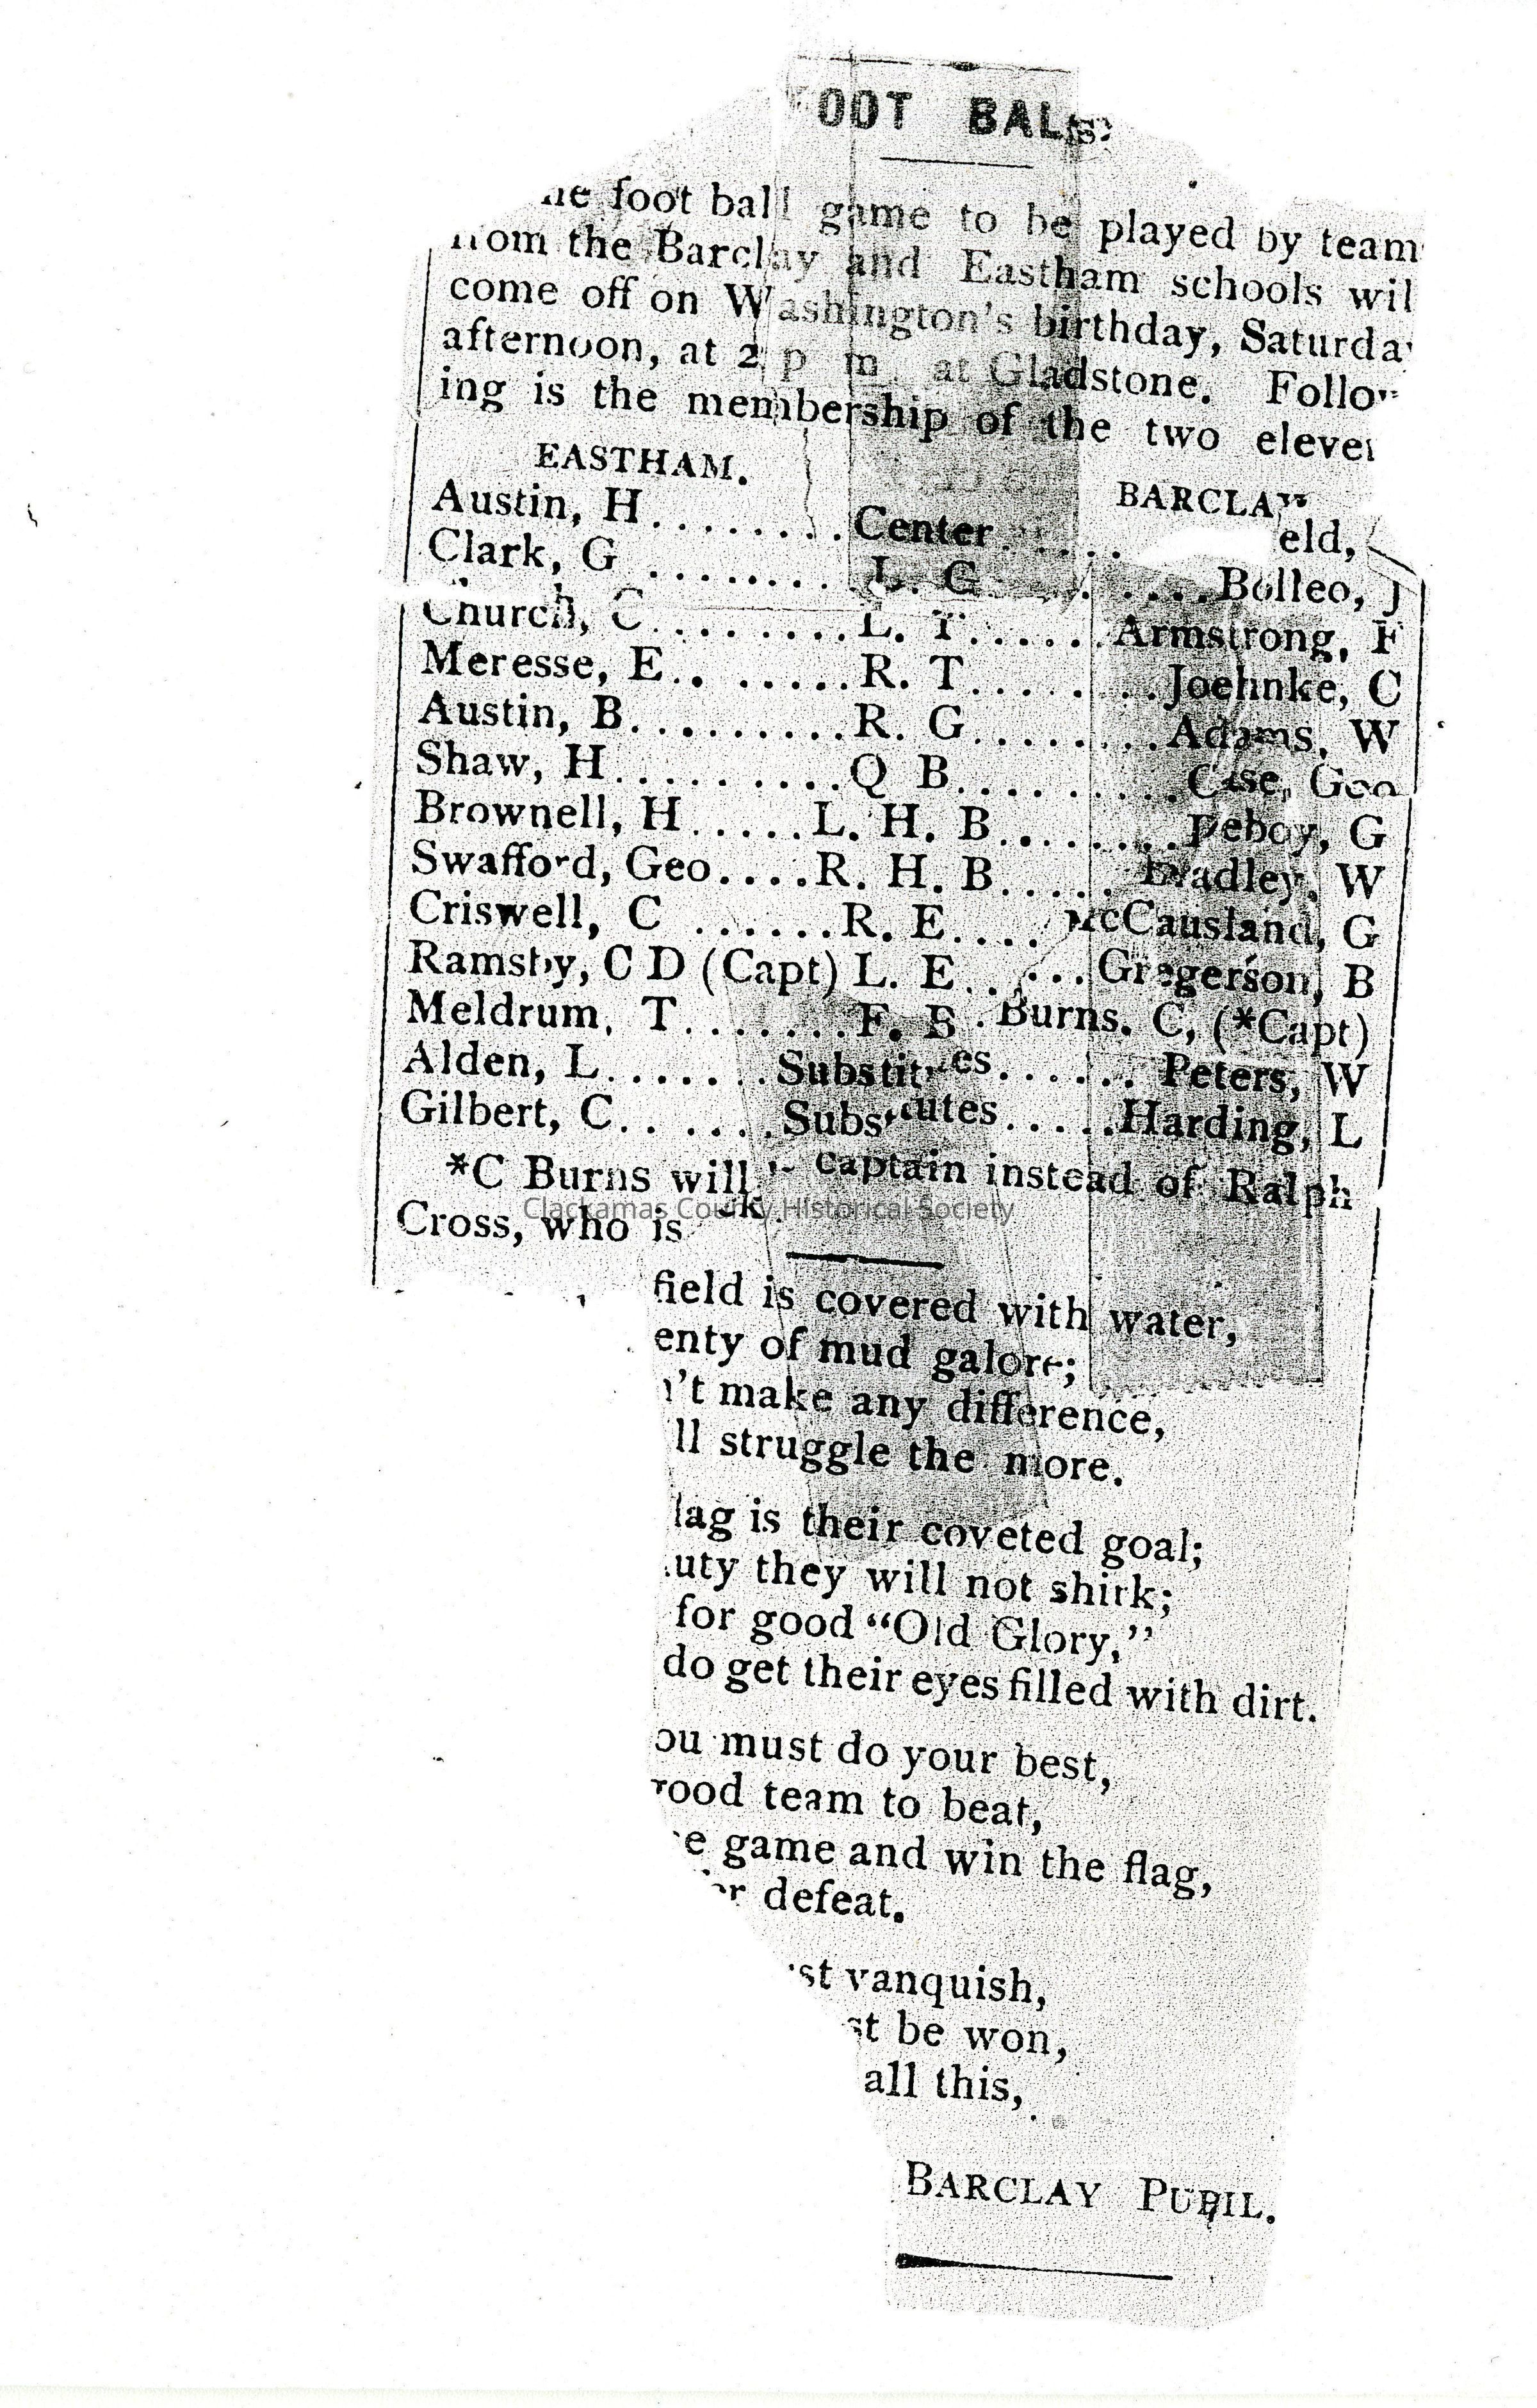 OOT BALL
foot ball game to be played by team
from the Barclay and Eastham schools wil
come off on Washington's birthday, Saturda
afternoon, at 2 p m at Gladstone. Follow
ing is the membership of the two eleve
EASTHAM. BARCLAY
Austin, H........Center.......eld,
Clark, G.........L. G.........Bolleo, J
Church, C.........L. T......Armstrong, F
Meresse, E.. ......R. T........Joehnke, C
Austin, B.........R. G........Adams, W
Shaw, H..........Q B.........Case, Geo
Brownell, H.....L. H. B........Peboy, G
Swafford, Geo....R. H. B..... Bradley, W
Criswell, C ......R. E.... McCausland, G
Ramsby, C D (Capt) L. E......Gregerson, B
Meldrum, T.......F. B .Burns. C, (*Capt)
Alden, L.......Substitutes...... Peters, W
Gilbert, C.. ....Substitutes.....Harding, L
*C Burns will captain instead of Ralph
Cross, who is
Clackamas County Historical Society
field is covered with water,
enty of mud galore;
't make any difference,
ll struggle the more.
lag is their coveted goal;
uty they will not shirk;
for good "Old Glory,"
do get their eyes filled with dirt.
ou must do your best,
ood team to beat,
e game and win the flag,
er defeat.
st vanquish,
st be won,
all this,
BARCLAY PUPIL.